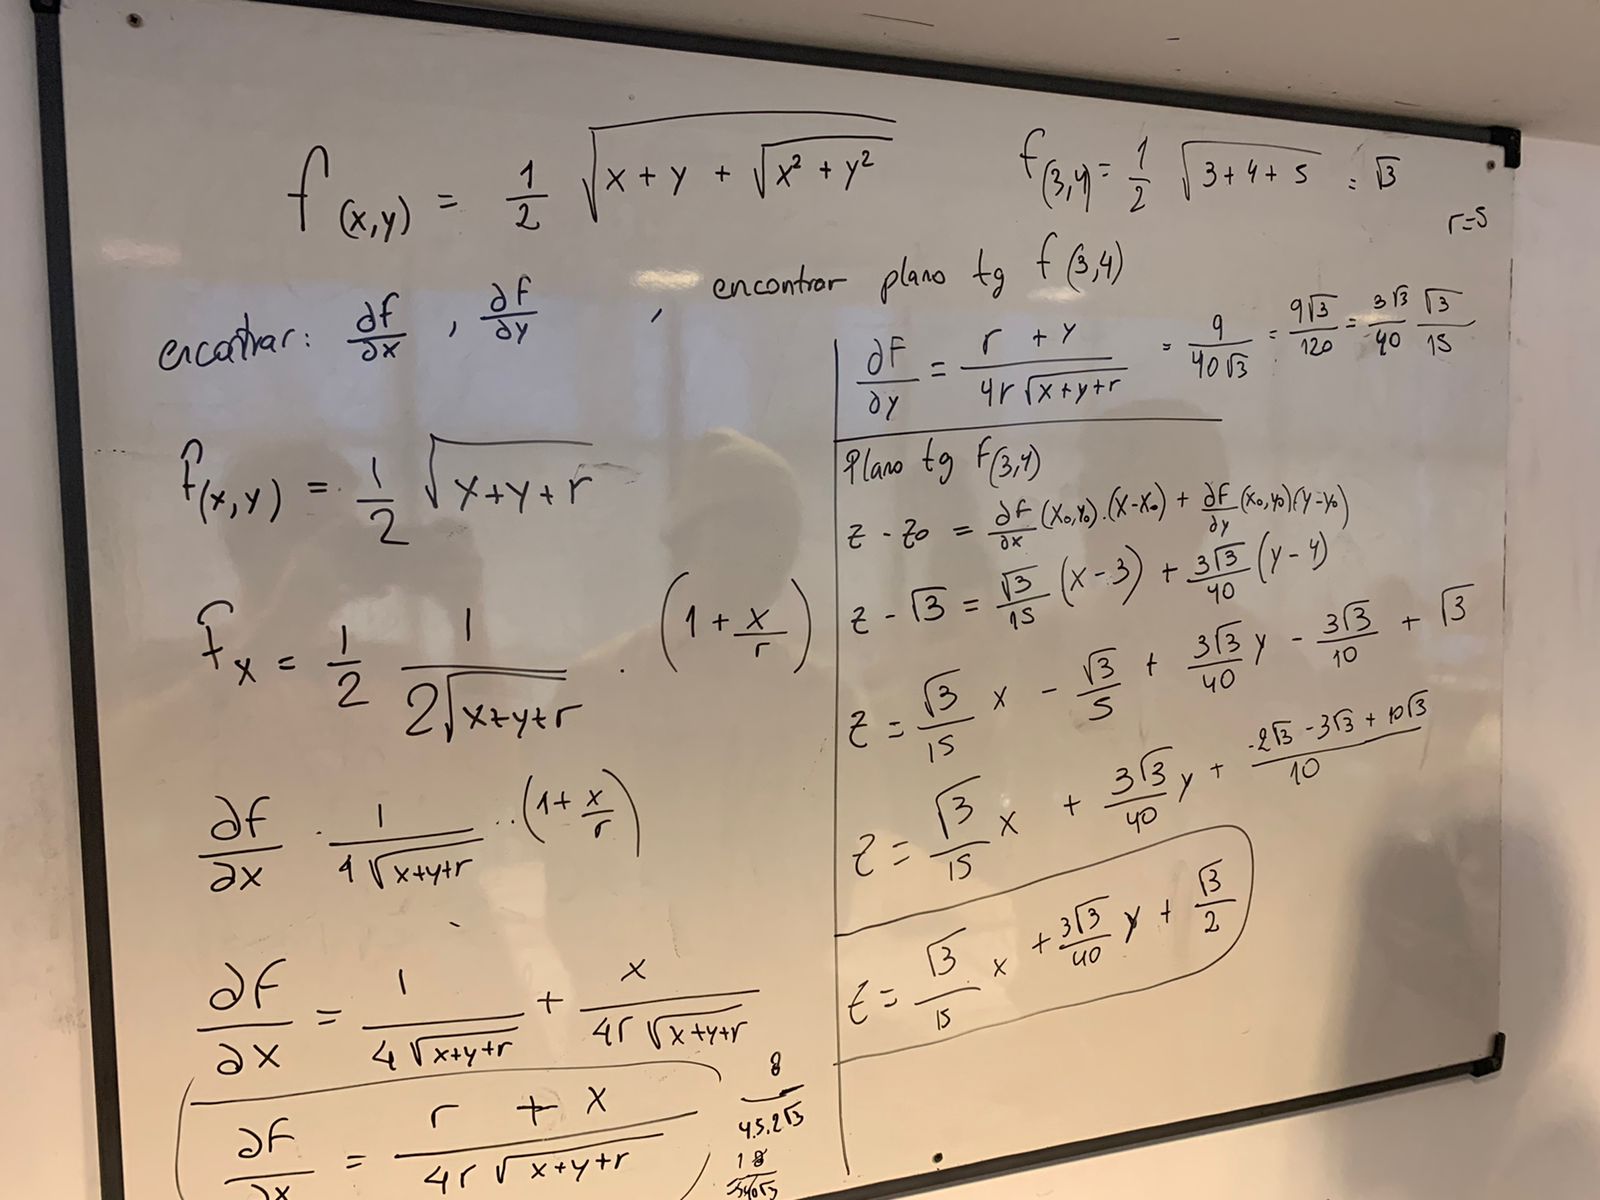 f(x,y) = 1/2 √(x + y + √(x² + y²))
f(3,4) = 1/2 √(3+4+5) = √3
r=5
encotrar: ∂f/∂x , ∂f/∂y , encontrar plano tg f(3,4)
f(x,y) = 1/2 √(x+y+r)
fx = 1/2 1/(2√(x+y+r)) · (1 + x/r)
∂f/∂x · 1/(4√(x+y+r)) ·· (1+ x/r)
∂f/∂x = 1/(4√(x+y+r)) + x/(4r √(x+y+r))
∂f/∂x = (r + x)/(4r √(x+y+r))
8/(4.5.2√3)
∂f/∂y = (r + y)/(4r √(x+y+r)) = 9/(40√3) = 9√3/120 = 3√3/40 √3/15
Plano tg f(3,4)
z - z0 = ∂f/∂x (x0,y0).(x-x0) + ∂f/∂y (x0,y0)(y-y0)
z - √3 = √3/15 (x-3) + 3√3/40 (y-4)
z = √3/15 x - √3/5 + 3√3/40 y - 3√3/10 + √3
z = √3/15 x + 3√3/40 y + (-2√3 - 3√3 + 10√3)/10
z = √3/15 x + 3√3/40 y + √3/2